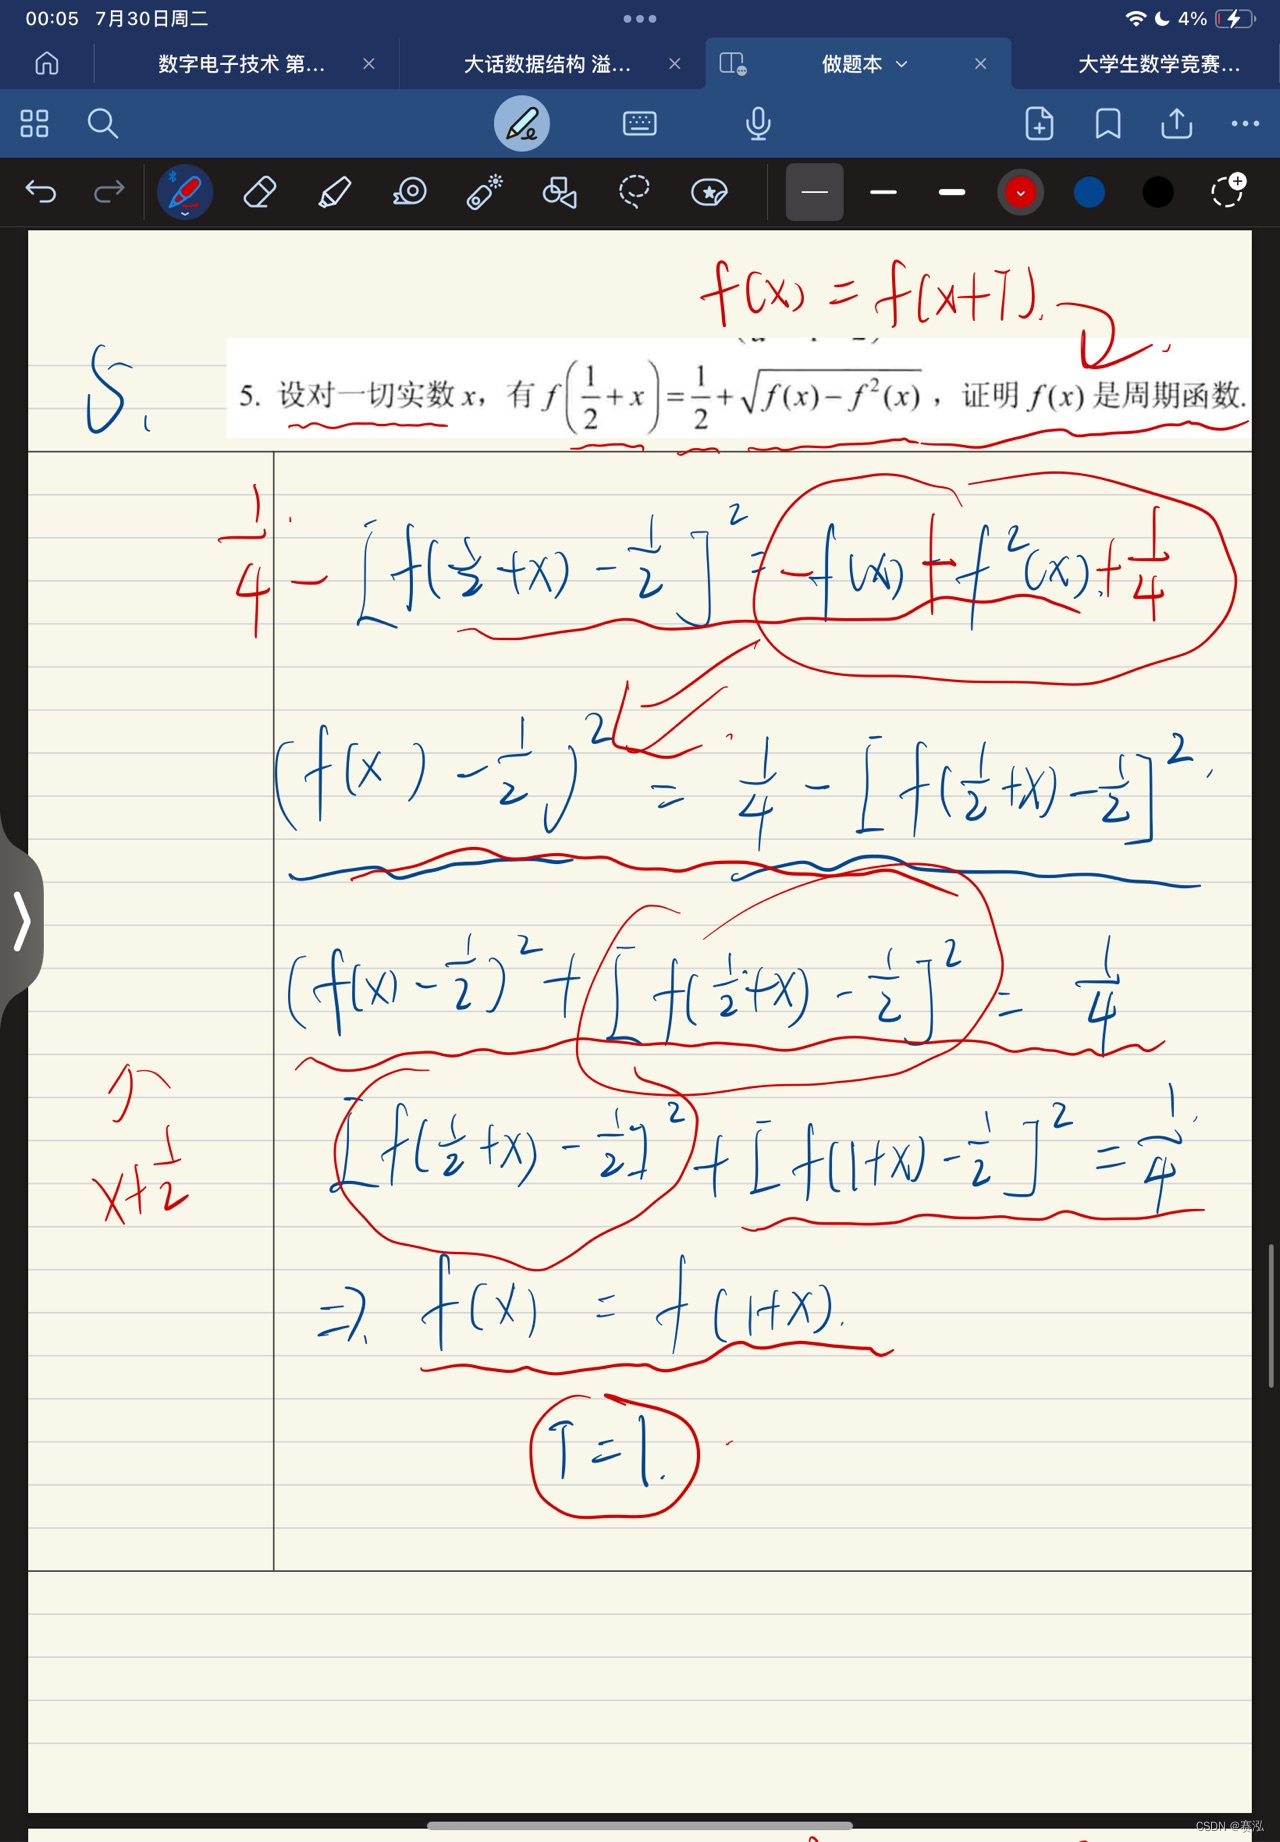 00:05 7月30日周二
4%
数字电子技术 第... × 大话数据结构 溢... × 做题本 × 大学生数学竞赛...
f(x) = f(x+T).
5.
5. 设对一切实数 x，有 f(1/2+x)=1/2+√(f(x)−f²(x))，证明 f(x) 是周期函数.
1/4 − [f(1/2+x) − 1/2]² = −f(x) + f²(x) + 1/4
(f(x) − 1/2)² = 1/4 − [f(1/2+x) − 1/2]²
(f(x) − 1/2)² + [f(1/2+x) − 1/2]² = 1/4
x+1/2
[f(1/2+x) − 1/2]² + [f(1+x) − 1/2]² = 1/4
⇒ f(x) = f(1+x).
T=1.
CSDN @赛泓